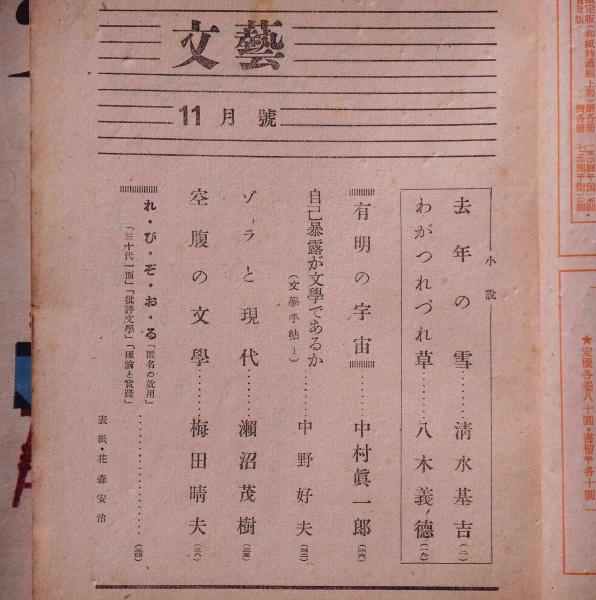 文藝
11月號
小説
去年の雪……清水基吉(一)
わがつれづれ草……八木義德(一九)
有明の宇宙……中村眞一郎(四六)
自己暴露が文學であるか(文學手帖1)……中野好夫(四二)
ゾラと現代……瀬沼茂樹(三五)
空腹の文學……梅田晴夫(三八)
れ・び・ぞ・お・る「匿名の效用」
「三十代一面」「批評文學」「理論と實踐」……(五四)
表紙・花森安治
★定價各卷八十圓・書留〒各十圓